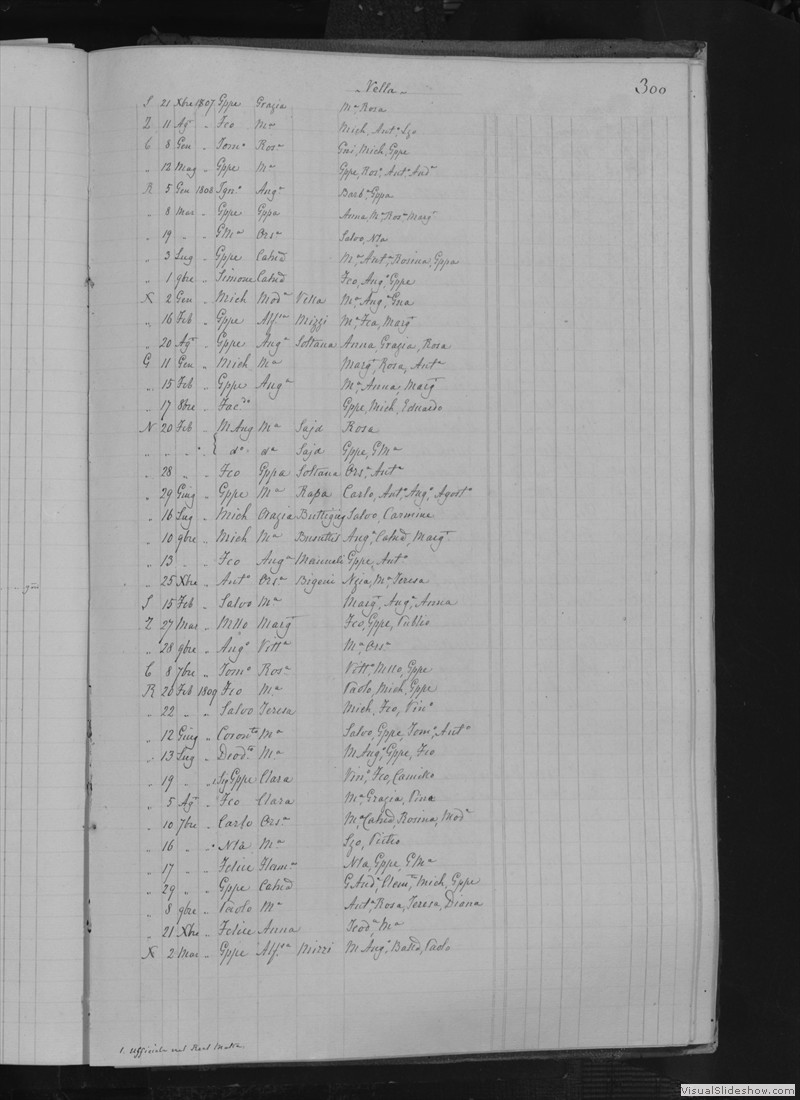 Vella
300
S 21 Xbre 1807 Gppe Grazia Mª Rosa
Z 11 Agº „ Fco Mª Mich, Antº, Lzo
C 8 Gen „ Tomº Rosª Gai, Mich, Gppe
„ 12 Mag „ Gppe Mª Gppe, Rosª, Antª Andª
R 5 Gen 1808 Ignº Angª Barbª, Gppa
„ 8 Mar „ Gppe Gppa Anna, Mª, Rosª, Margª
„ 19 „ „ GMª Orsª Salvo, Nla
„ 3 Lug „ Gppe Catnª Mª, Antª, Rosina, Gppa
„ 1 9bre „ Simone Catnª Fco, Angº, Gppe
X 2 Gen „ Mich Modª Vella Mª, Angª, Gna
„ 16 Feb „ Gppe Alfˢª Mizzi Mª, Fca, Margª
„ 20 Agº „ Gppe Angª Soltana Anna, Grazia, Rosa
G 11 Gen „ Mich Mª Margª, Rosa, Antª
„ 15 Feb „ Gppe Angª Mª, Anna, Margª
„ 17 8bre „ Gppe, Mich, Eduardo
N 20 Feb „ M Ang Mª Sajd Rosa
„ „ „ „ dº dª Sajd Gppe, GMª
„ 28 „ „ Fco Gppa Soltana Orsª, Antª
„ 29 Giug „ Gppe Mª Rapa Carlo, Antº, Angº, Agostº
„ 16 Lug „ Mich Grazia Buttigieg Salvo, Carmine
„ 10 9bre „ Mich Mª Busuttil Angª, Catnª, Margª
„ 13 „ „ Fco Angª Gppe, Antº
„ 25 Xbre „ Antº Orsª Bigeni Nzia, Mª, Teresa
S 15 Feb „ Salvo Mª Margª, Angª, Anna
Z 27 Mar „ Mllo Margª Fco, Gppe, Publio
„ 28 9bre „ Angº Vittª Mª, Orsª
C 8 7bre „ Tomº Rosª Vittº, Mllo, Gppe
R 20 Feb 1809 Fco Mª Paolo, Mich, Gppe
„ 22 „ „ Salvo Teresa Mich, Fco, Vinº
„ 12 Giug „ Mª Salvo, Gppe, Tomº, Antº
„ 13 Lug „ Diodº Mª M Angº, Gppe, Fco
„ 19 „ „ Sig Gppe Clara Vinº, Fco, Camillo
„ 5 Agº „ Fco Clara Mª, Grazia, Vina
„ 10 7bre „ Carlo Orsª Mª, Catnª, Rosina, Modª
„ 16 „ „ Nla Mª Lzo, Pietro
„ 17 „ „ Felice Flamª Nla, Gppe, GMª
„ 29 „ „ Gppe Catnª G Andª, Clemª, Mich, Gppe
„ 8 9bre „ Paolo Mª Antª, Rosa, Teresa, Diana
„ 21 Xbre „ Felice Anna Teodª, Mª
X 2 Mar „ Gppe Alfˢª Mizzi M Angº, Baldº, Paolo
1. Ufficiale nel Real Malta
VisualSlideshow.com